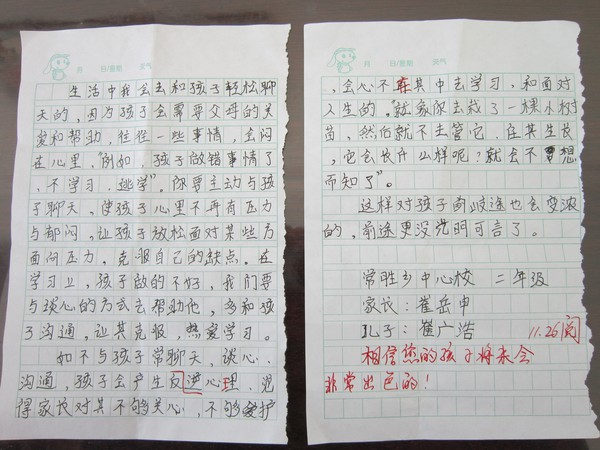 月 日/星期 天气
生活中我会去和孩子轻松聊
天的，因为孩子会需要父母的关
爱和帮助，往往一些事情，会闷
在心里，例如，孩子做错事情了
，不学习，逃学"。你要主动与孩
子聊天，使孩子心里不再有压力
与郁闷，让孩子放松面对某些方
面向压力，克服自己的缺点。在
学习上，孩子做的不好，我们要
与谈心的方式去帮助他，多和孩
子沟通，让其克服，热爱学习。
如不与孩子常聊天，谈心、
沟通，孩子会产生反逆心理，觉
得家长对其不够关心，不够爱护
月 日/星期 天气
，会心不在其中去学习，和面对
人生的。就象你去栽了一棵小树
苗，然后就不去管它，任其生长，
它会长什么样呢？就会不 想
而知了"。
这样对孩子向歧途也会变浓
的，前途更没光明可言了。
常胜乡中心校 二年级
家长：崔岳申
儿子：崔广浩
11.26阅
相信您的孩子将来会
非常出色的！